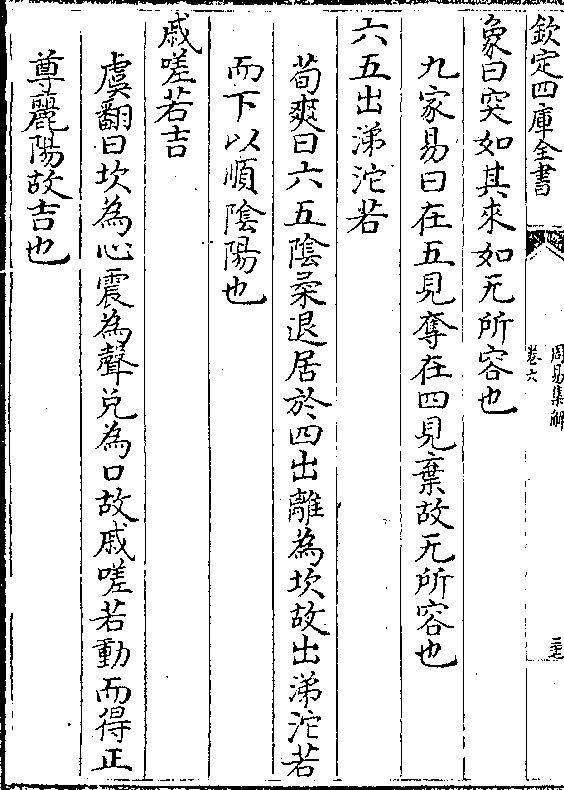 欽定四庫全書
周易集解
卷六
三七
象曰突如其來如无所容也
九家易曰在五見奪在四見棄故无所容也
六五出涕沱若
荀爽曰六五陰柔退居於四出離為坎故出涕沱若
而下以順陰陽也
戚嗟若吉
虞翻曰坎為心震為聲兌為口故戚嗟若動而得正
尊麗陽故吉也